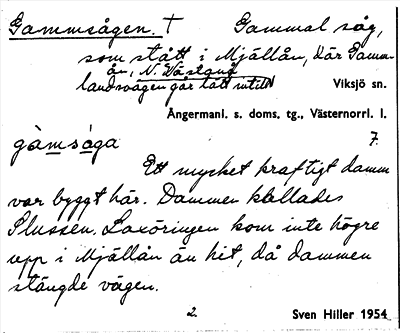 Gammsågen. † Gammal såg,
som stått i Mjällån, där Gamm-
ån, N. Västanå
landsvägen går tätt intill
Viksjö sn.
Ångermanl. s. doms. tg., Västernorrl. l.
gàmsåga 7.
Ett mycket kraftigt damm
var byggt här. Dammen kallades
Slussen. Laxöringen kom inte högre
upp i Mjällån än hit, då dammen
stängde vägen.
2
Sven Hiller 1954